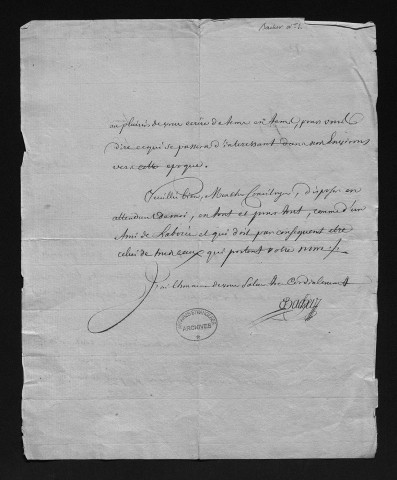 au plaisir de vous écrire de tems en tems, pour vous
dire ce qui se passera d'interessant dans nos Environs
vers cette époque.
Veuillés bien, Mon cher, disposer en
attendant de moi, en tout et pour tout, comme d'un
Ami de et qui doit par conséquent etre
celui de tous ceux qui portent votre nom
J'ai l'honneur de vous Saluer très Cordialement
Bacher
ARCHIVES